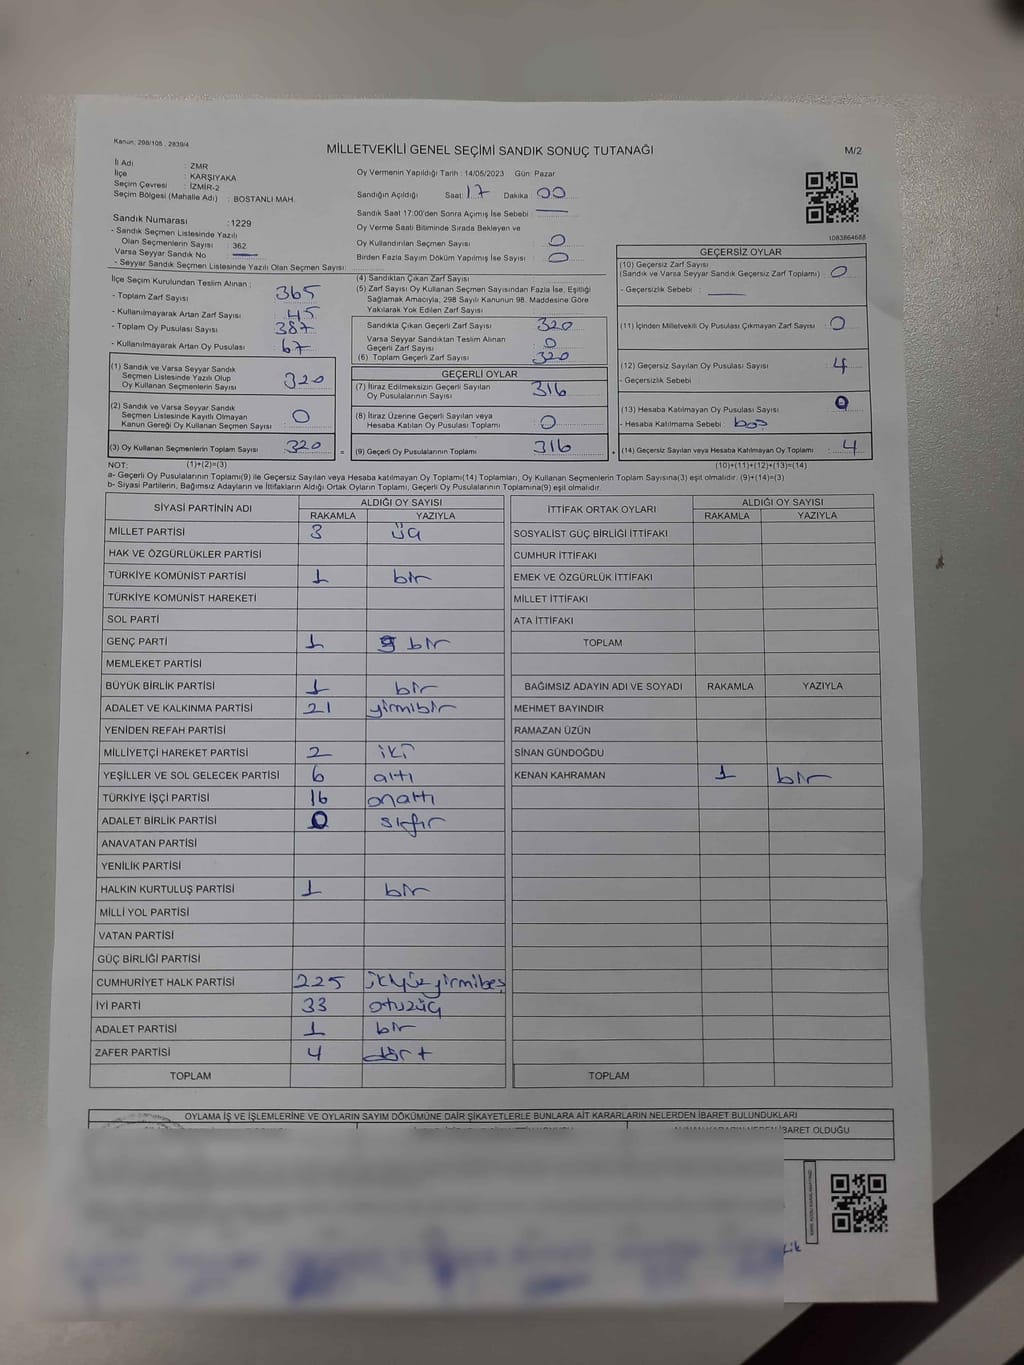 Kanun: 298/105 , 2839/4
MİLLETVEKİLİ GENEL SEÇİMİ SANDIK SONUÇ TUTANAĞI
M/2
İl Adı : ZMR
İlçe : KARŞIYAKA
Seçim Çevresi : İZMİR-2
Seçim Bölgesi (Mahalle Adı) : BOSTANLI MAH.
Sandık Numarası : 1229
- Sandık Seçmen Listesinde Yazılı
Olan Seçmenlerin Sayısı : 362
Varsa Seyyar Sandık No : —
- Seyyar Sandık Seçmen Listesinde Yazılı Olan Seçmen Sayısı:
Oy Vermenin Yapıldığı Tarih : 14/05/2023 Gün: Pazar
Sandığın Açıldığı Saat: 17 Dakika : 00
Sandık Saat 17:00'den Sonra Açımış İse Sebebi : —
Oy Verme Saati Bitiminde Sırada Bekleyen ve
Oy Kullandırılan Seçmen Sayısı : 0
Birden Fazla Sayım Döküm Yapılmış İse Sayısı : 0
1083864688
İlçe Seçim Kurulundan Teslim Alınan :
- Toplam Zarf Sayısı : 365
- Kullanılmayarak Artan Zarf Sayısı : 45
- Toplam Oy Pusulası Sayısı : 387
- Kullanılmayarak Artan Oy Pusulası : 67
(1) Sandık ve Varsa Seyyar Sandık
Seçmen Listesinde Yazılı Olup
Oy Kullanan Seçmenlerin Sayısı : 320
(2) Sandık ve Varsa Seyyar Sandık
Seçmen Listesinde Kayıtlı Olmayan
Kanun Gereği Oy Kullanan Seçmen Sayısı : 0
(3) Oy Kullanan Seçmenlerin Toplam Sayısı : 320
(4) Sandıktan Çıkan Zarf Sayısı
(5) Zarf Sayısı Oy Kullanan Seçmen Sayısından Fazla İse, Eşitliği
Sağlamak Amacıyla, 298 Sayılı Kanunun 98. Maddesine Göre
Yakılarak Yok Edilen Zarf Sayısı
Sandıkta Çıkan Geçerli Zarf Sayısı : 320
Varsa Seyyar Sandıktan Teslim Alınan
Geçerli Zarf Sayısı : 0
(6) Toplam Geçerli Zarf Sayısı : 320
GEÇERLİ OYLAR
(7) İtiraz Edilmeksizin Geçerli Sayılan
Oy Pusulalarının Sayısı : 316
(8) İtiraz Üzerine Geçerli Sayılan veya
Hesaba Katılan Oy Pusulası Toplamı : 0
= (9) Geçerli Oy Pusulalarının Toplamı : 316
GEÇERSİZ OYLAR
(10) Geçersiz Zarf Sayısı
(Sandık ve Varsa Seyyar Sandık Geçersiz Zarf Toplamı) : 0
- Geçersizlik Sebebi : —
(11) İçinden Milletvekili Oy Pusulası Çıkmayan Zarf Sayısı : 0
(12) Geçersiz Sayılan Oy Pusulası Sayısı : 4
- Geçersizlik Sebebi
(13) Hesaba Katılmayan Oy Pusulası Sayısı : 0
- Hesaba Katılmama Sebebi : boş
+ (14) Geçersiz Sayılan veya Hesaba Katılmayan Oy Toplamı : 4
NOT: (1)+(2)=(3) (10)+(11)+(12)+(13)=(14)
a- Geçerli Oy Pusulalarının Toplamı(9) ile Geçersiz Sayılan veya Hesaba katılmayan Oy Toplamı(14) Toplamları, Oy Kullanan Seçmenlerin Toplam Sayısına(3) eşit olmalıdır. (9)+(14)=(3)
b- Siyasi Partilerin, Bağımsız Adayların ve İttifakların Aldığı Ortak Oyların Toplamı, Geçerli Oy Pusulalarının Toplamına(9) eşit olmalıdır.
SİYASİ PARTİNİN ADI ALDIĞI OY SAYISI
RAKAMLA YAZIYLA
MİLLET PARTİSİ 3 üç
HAK VE ÖZGÜRLÜKLER PARTİSİ
TÜRKİYE KOMÜNİST PARTİSİ 1 bir
TÜRKİYE KOMÜNİST HAREKETİ
SOL PARTİ
GENÇ PARTİ 1 bir
MEMLEKET PARTİSİ
BÜYÜK BİRLİK PARTİSİ 1 bir
ADALET VE KALKINMA PARTİSİ 21 yirmibir
YENİDEN REFAH PARTİSİ
MİLLİYETÇİ HAREKET PARTİSİ 2 iki
YEŞİLLER VE SOL GELECEK PARTİSİ 6 altı
TÜRKİYE İŞÇİ PARTİSİ 16 onaltı
ADALET BİRLİK PARTİSİ 0 sıfır
ANAVATAN PARTİSİ
YENİLİK PARTİSİ
HALKIN KURTULUŞ PARTİSİ 1 bir
MİLLİ YOL PARTİSİ
VATAN PARTİSİ
GÜÇ BİRLİĞİ PARTİSİ
CUMHURİYET HALK PARTİSİ 225 ikiyüzyirmibeş
İYİ PARTİ 33 otuzüç
ADALET PARTİSİ 1 bir
ZAFER PARTİSİ 4 dört
TOPLAM
İTTİFAK ORTAK OYLARI ALDIĞI OY SAYISI
RAKAMLA YAZIYLA
SOSYALİST GÜÇ BİRLİĞİ İTTİFAKI
CUMHUR İTTİFAKI
EMEK VE ÖZGÜRLÜK İTTİFAKI
MİLLET İTTİFAKI
ATA İTTİFAKI
TOPLAM
BAĞIMSIZ ADAYIN ADI VE SOYADI RAKAMLA YAZIYLA
MEHMET BAYINDIR
RAMAZAN ÜZÜN
SİNAN GÜNDOĞDU
KENAN KAHRAMAN 1 bir
TOPLAM
OYLAMA İŞ VE İŞLEMLERİNE VE OYLARIN SAYIM DÖKÜMÜNE DAİR ŞİKAYETLERLE BUNLARA AİT KARARLARIN NELERDEN İBARET BULUNDUKLARI
İBARET OLDUĞU